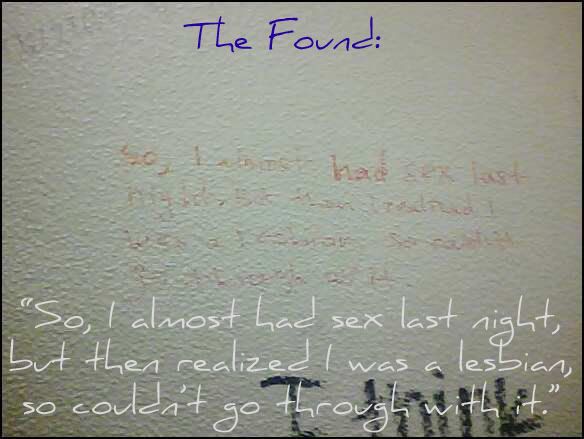 The Found:
So, I almost had sex last
night, but then I realized I
was a lesbian so couldn't
go through with it.
"So, I almost had sex last night,
but then realized I was a lesbian,
so couldn't go through with it."
I think